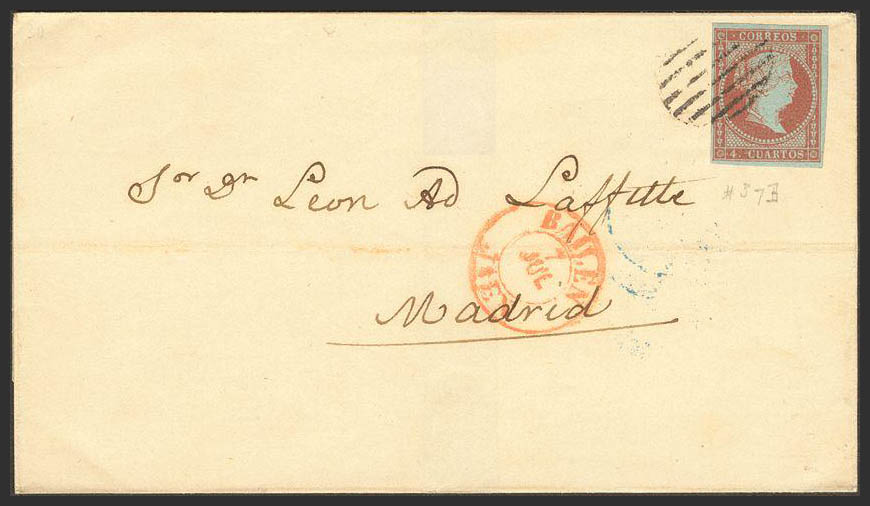 CORREOS
4. CUARTOS
Sor Dn Leon Ad Laffitte
#37B
BAILEN
7
JUL
Madrid